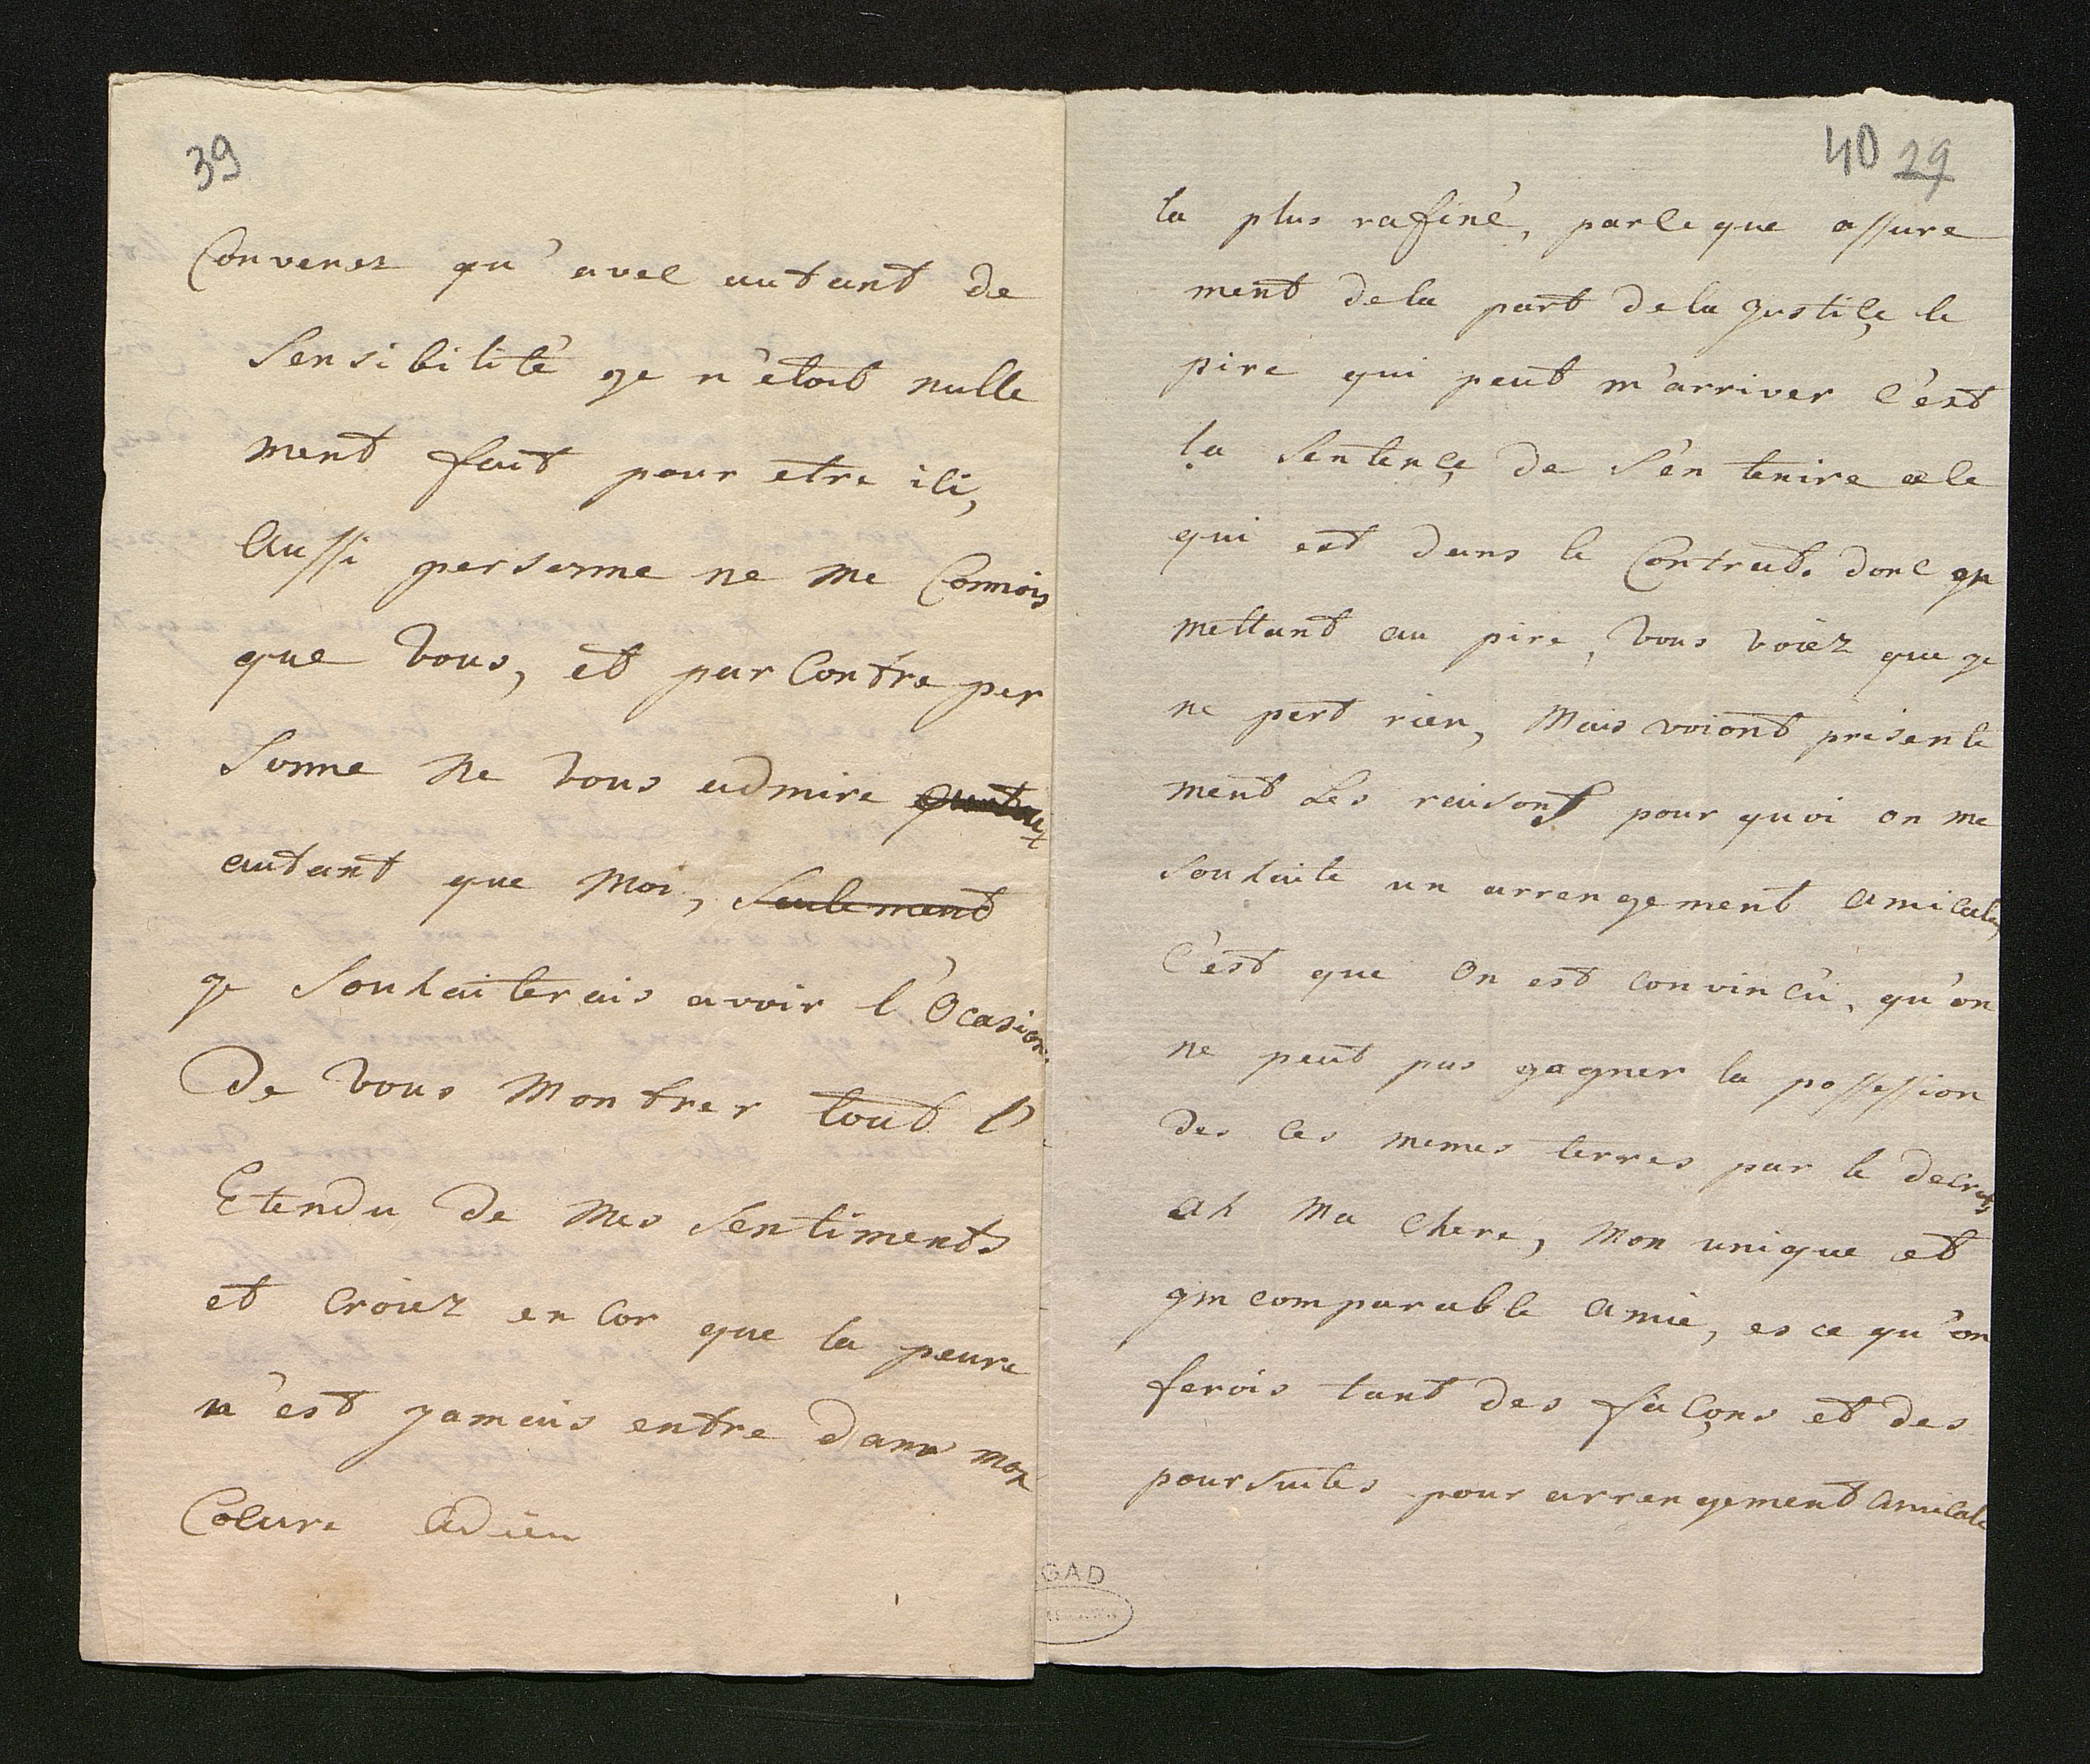 39
Convenez qu'avec autant de
Sensibilité ge n'etoit nulle
ment fait pour etre ici,
Aussi personne ne me Connois
que Vous, et par Contre per
Sonne Ne Vous admire
autant que Moi, Seulement
ge Souhaiterais avoir l'Ocasion
De Vous Montrer tout l'
Etendu De Mes Sentiments
et croiez encor que la peure
n'est gamais entre Dans mon
Coeure Adieu
40 29
la plus rafiné, parceque assure
ment de la part de la gustiçe le
pire qui peut m'arriver c'est
la Sentençe de S'en tenire a ce
qui est dans le Contract. donc en
mettant au pire, Vous voiez que ge
ne pert rien, Mais voiont presente
ment Les raisons pour quoi on me
Souhaite un arrengement amicale,
C'est que On est convincu, qu'on
ne peut pas gagner la possession
des ces memes terres par le decret,
ah Ma chere, Mon unique et
gincomparable amie, es ce qu'on
ferois tant des façons et des
poursuites pour arrengement amicale
GAD